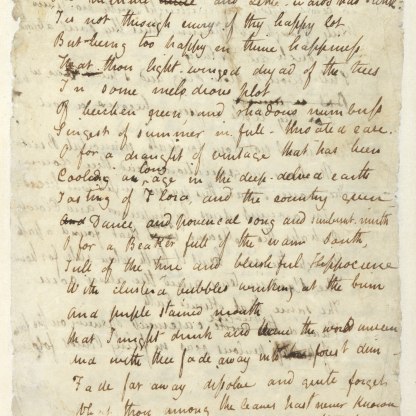 and Lethe-wards had sunk
Tis not through envy of thy happy lot
But being too happy in thine happiness
That thou light-winged dryad of the trees
In some melodious plot
Of beechen green and shadows numberless
Singest of summer in full-throated ease.
O for a draught of vintage that has been
Cooling an long age in the deep-delved earth
Tasting of Flora and the country green
And Dance and provencal song and sunburnt mirth
O for a Beaker full of the warm South,
Full of the true and blushful Hippocrene
With cluster'd bubbles winking at the brim
And purple stained mouth
That I might drink and leave the world unseen
And with thee fade away into the forest dim—
Fade far away dissolve and quite forget
What thou among the leaves hast never known